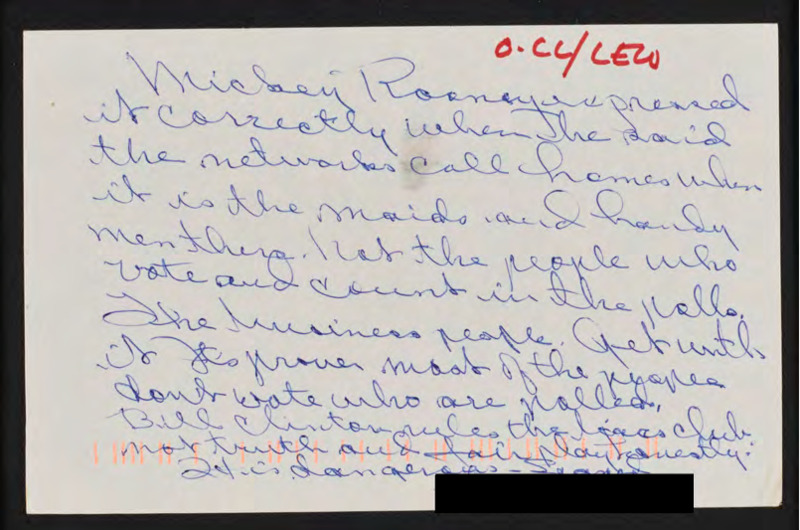 O.CL/LEW
Mickey Rooney expressed
it correctly when he said
the networks call homes when
it is the maids and handy
men there. Not the people who
vote and count in the polls.
The business people. Get with
it Its proven most of the people
dont vote who are polled.
Bill Clinton rules the liars club
not truth and fair play honestly.
It is dangerous -